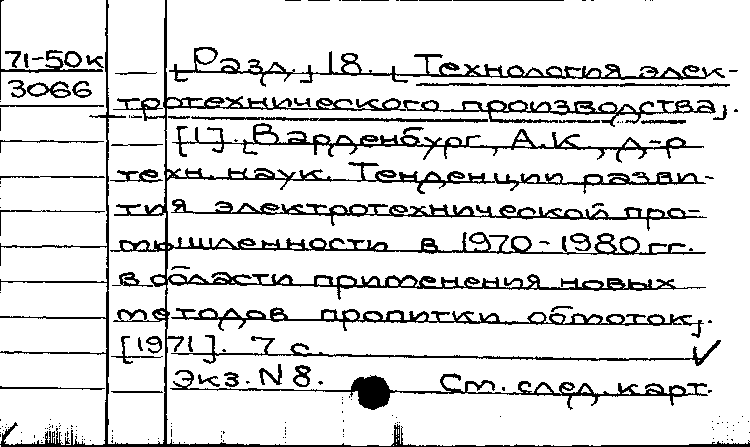 71-50к
3066
[Разд.] 18. [Технология элек-
тротехнического производства].
[1]. [Варденбург, А.К., д-р
техн. наук. Тенденции разви-
тия электротехнической про-
мышленности в 1970-1980 гг.
в области применения новых
методов пропитки обмоток].
[1971]. 7 с.
Экз. N 8. См. след. карт.